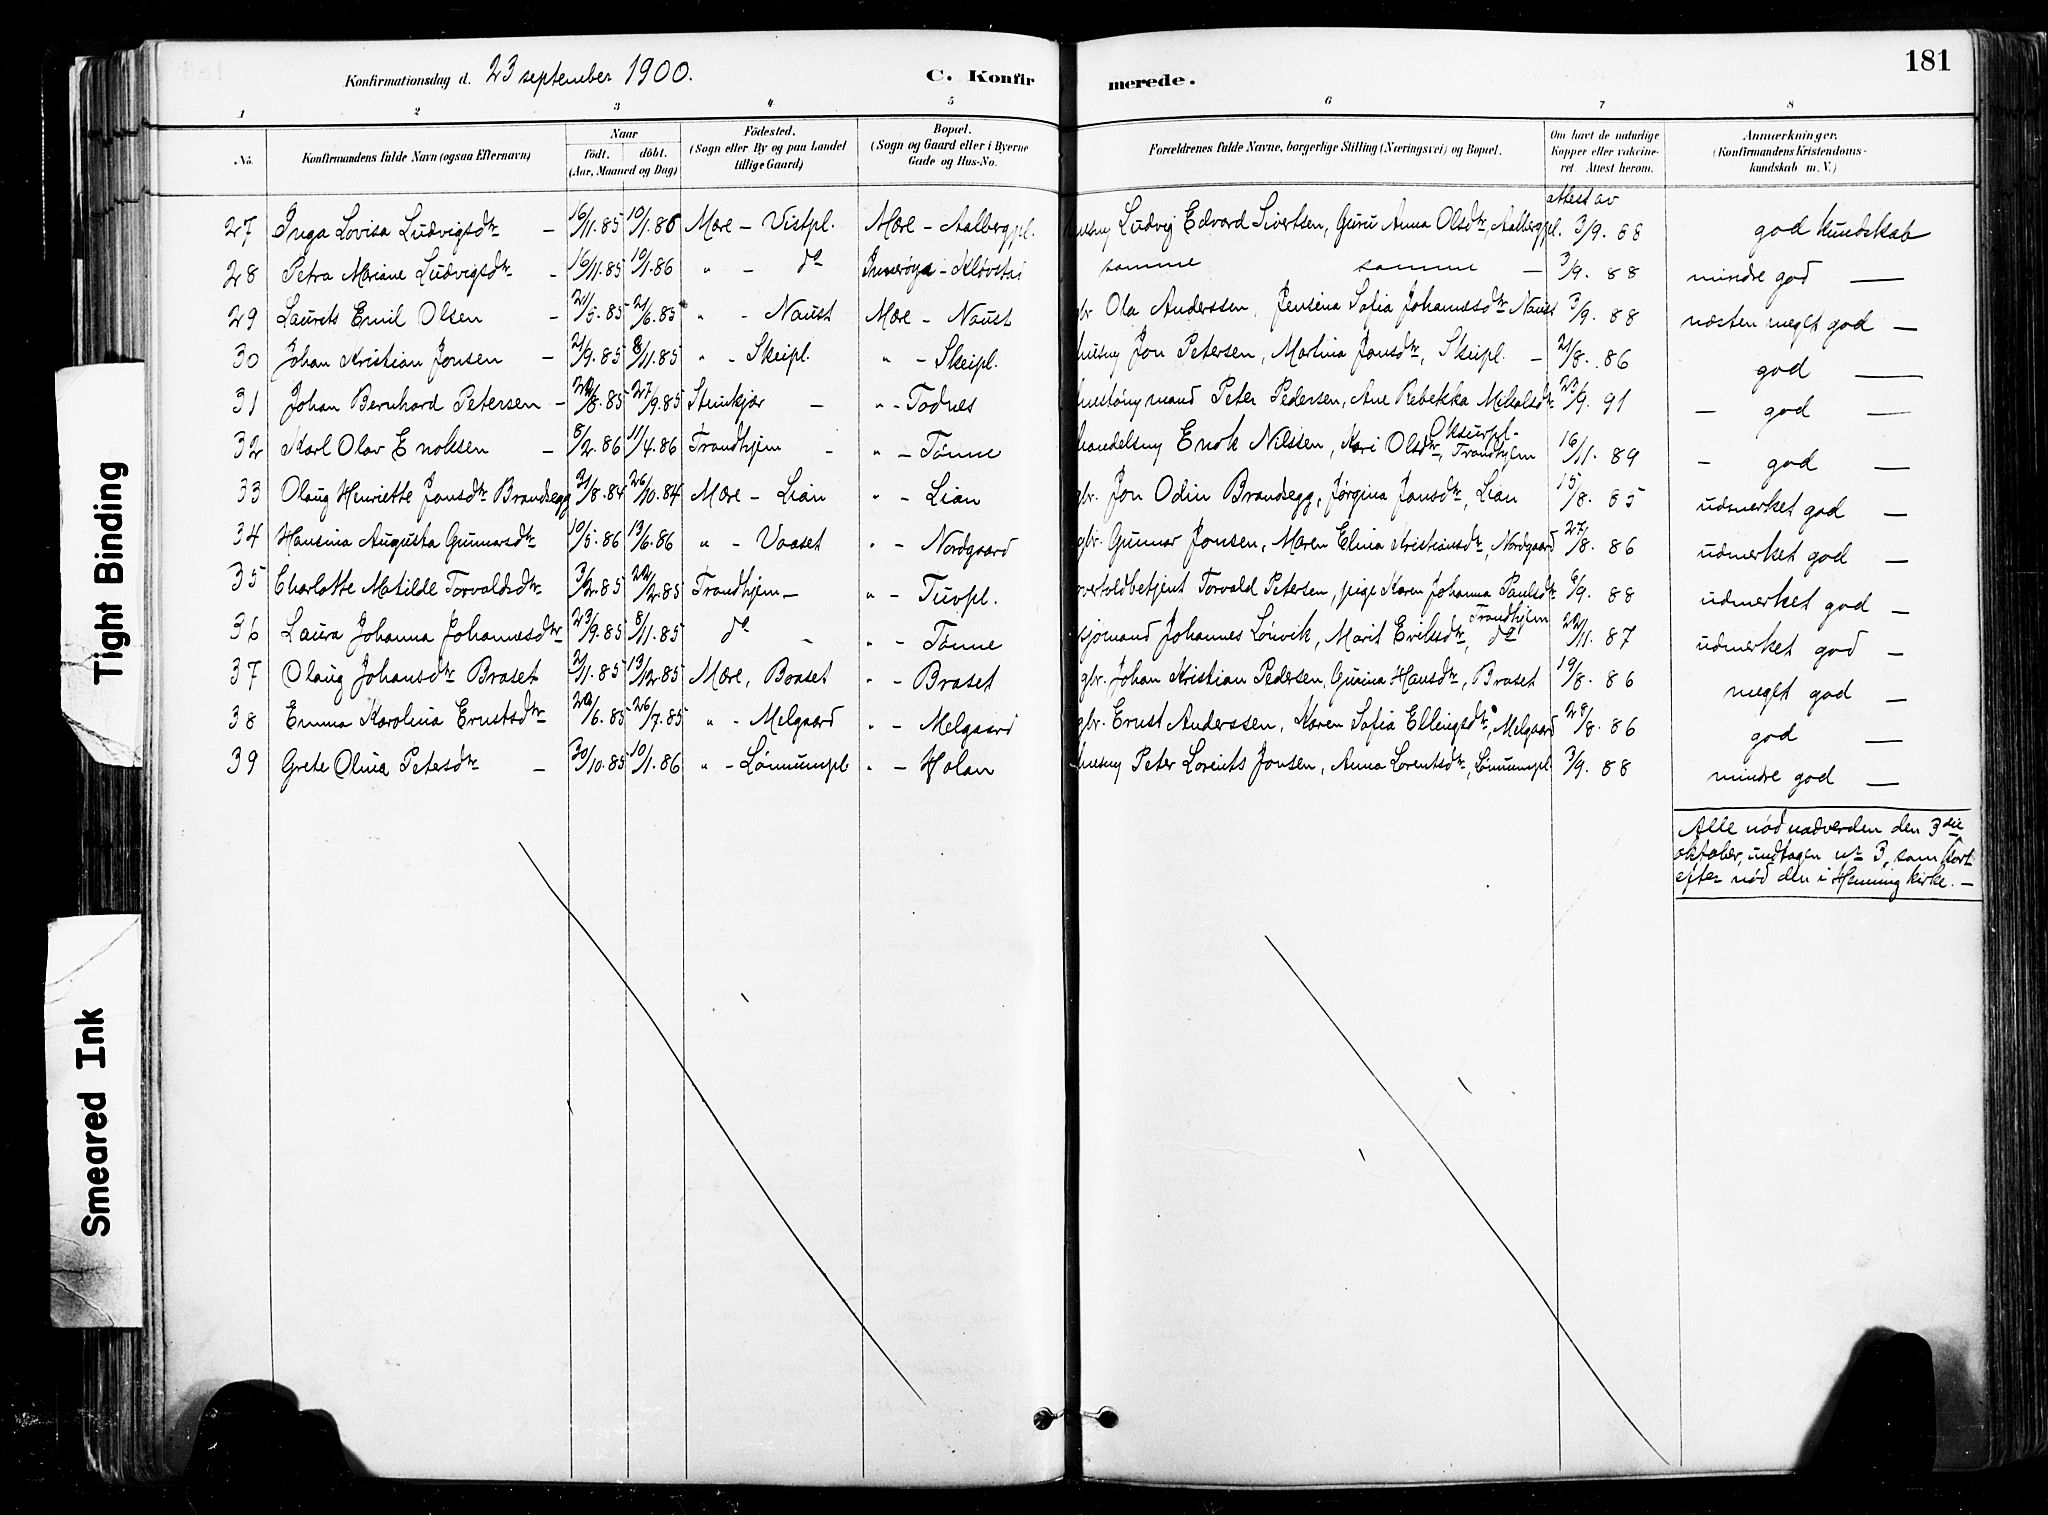 181
Konfirmationsdag d. 23 september 1900. C. Konfir merede.
1 2 3 4 5 6 7 8
No. Konfirmandens fulde Navn (ogsaa Efternavn) Naar födt. döbt. (Aar, Maaned og Dag) Födested. (Sogn eller By og paa Landet tillige Gaard) Bopæl. (Sogn og Gaard eller i Byerne Gade og Hus-No. Forældrenes fulde Navne, borgerlige Stilling (Næringsvei) og Bopæl. Om havt de naturlige Kopper eller vakcineret. Attest herom. Anmærkninger. (Konfirmandens Kristendomskundskab m. V.)
attest av
27 Inga Lovisa Ludvigsdtr – 16/11.85 10/1.86 Mære – Vistpl. Mære – Aalbergpl. Ludvig Edvard Sivertsen, Guru Anna Olsdtr, Aalbergpl. 3/9. 88 god kundskab
28 Petra Mariane Ludvigsdtr – 16/11.85 10/1.86 " – do Inderøya – Kløvstai samme samme – 3/9. 88 mindre god —
29 Laurits Emil Olsen – 21/5.85 21/6.85 " – Naust Mære – Naust gbr Ola Anderssen, Jensina Sofia Johannesdtr Naust 3/9. 88 næsten meget god —
30 Johan Kristian Jonsen – 21/9.85 8/11.85 " – Skeipl. " – Skeipl. husmy Jon Petersen, Martina Jonsdtr, Skeipl. – 21/8. 86 god —
31 Johan Bernhard Petersen – 22/8.85 27/9.85 Steinkjær – " – Todnes mand Peter Pedersen, Ane Rebekka Mikalsdtr 23/9. 91 – god —
32 Karl Olav Enoksen – 8/2.86 11/4.86 Trondhjem – " – Tønne handelsmy Enok Nilssen, Kari Olsdtr, Trondhjem 16/11. 89 – god —
33 Olaug Henriette Jonsdtr Brandsegg 21/8.84 26/10.84 Mære – Lian " – Lian gbr. Jon Odin Brandsegg, Jørgina Jonsdtr, Lian 15/8. 85 udmerket god —
34 Hansina Augusta Gunnarsdtr 10/5.86 13/6.86 " – Vaaset " – Nordgaard gbr. Gunnar Jonsen, Maren Elina Kristiansdtr, Nordgaard 27/8. 86 udmerket god —
35 Charlotte Matilde Torvaldsdtr 3/2.85 22/2.85 Trondhjem – " – Tuvpl. overtoldbetjent Torvald Petersen, pige Karen Johanna Paulsdtr 6/9. 88 udmerket god —
Trondhjem
36 Laura Johanna Johannesdtr 23/9.85 8/11.85 do – " – Tønne sjømand Johannes Lönvik, Marit Eriksdtr, do 22/11. 87 udmerket god —
37 Olaug Johansdtr Braset 2/11.85 13/12.85 Mære, Braset " – Braset gbr. Johan Kristian Pedersen, Guruina Hansdtr, Braset 19/8. 86 meget god —
38 Emma Karolina Ernstsdtr 22/6.85 26/7.85 " – Melgaard " – Melgaard gbr. Ernst Anderssen, Karen Sofia Ellingsdtr, Melgaard 28/8. 86 god —
39 Grete Olina Petersdtr – 30/10.85 10/1.86 " – Lønnumpl " – Holan husmy Peter Lorents Jonsen, Anna Lorentsdtr, Lønnumpl 3/9. 88 mindre god —
Alle nød nadverden den 3die
oktober, undtagen nr 3, som
efter nød den i Henning kirke. —
Tight Binding
Smeared Ink